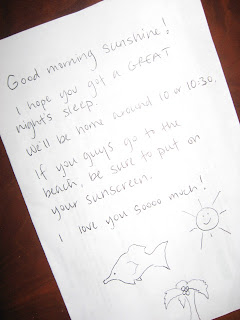 Good morning sunshine!
I hope you got a GREAT
night's sleep.
We'll be home around 10 or 10:30.
If you guys go to the
beach, be sure to put on
your sunscreen.
I love you soooo much!